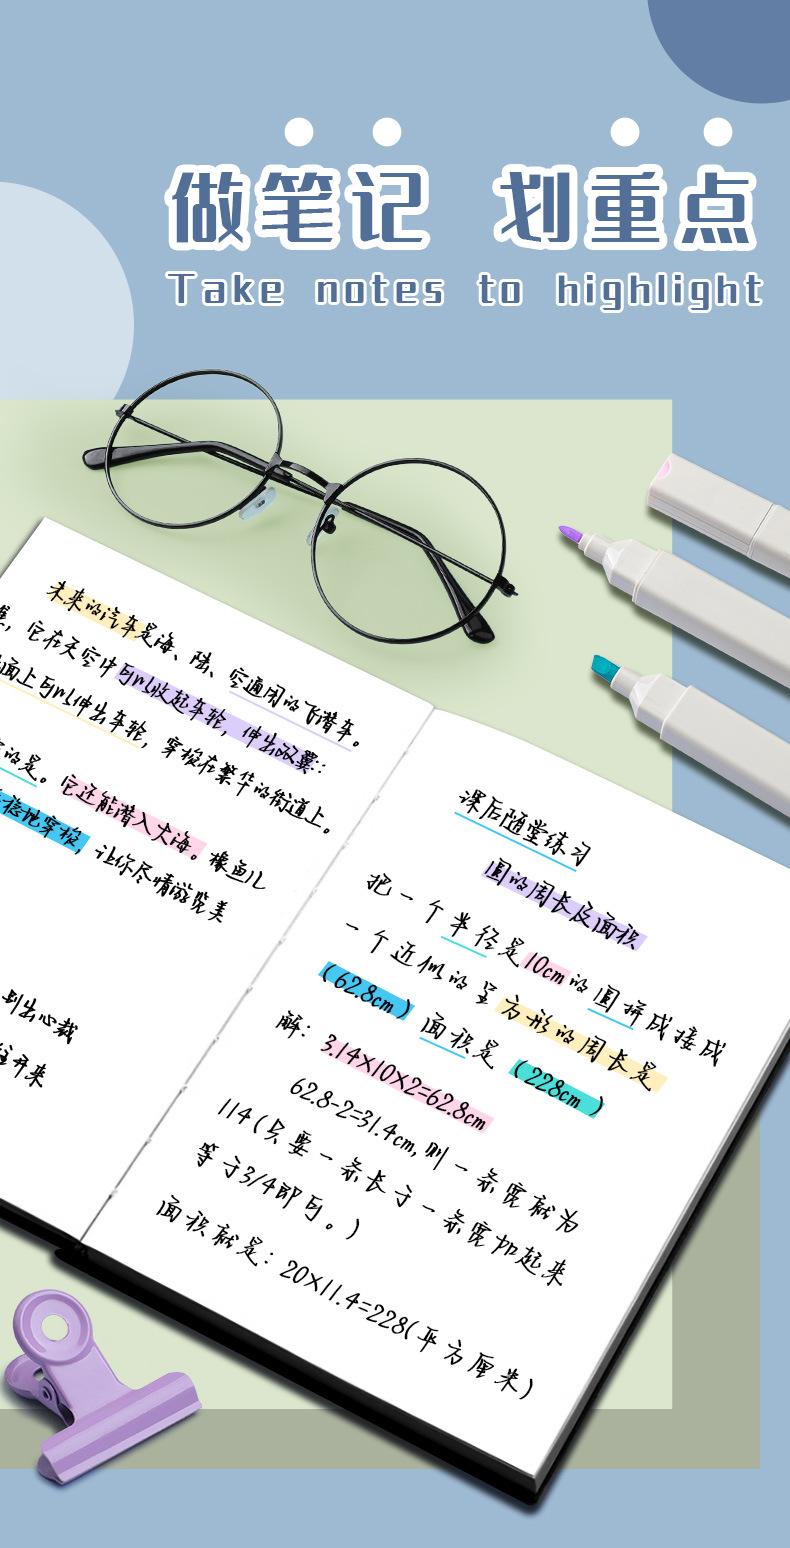 做笔记 划重点
Take notes to highlight
未来的汽车是海、陆、空通用的飞潜车。
它在天空中可以收起车轮，伸出双翼：
面上可以伸出车轮，穿梭在繁华的街道上。
的是。它还能潜入大海。像鱼儿
稳地穿梭，让你尽情游览美
别出心裁
开来
课后随堂练习
圆的周长及面积
把一个半径是10cm的圆拼成接成
一个近似的呈方形的周长是
(62.8cm) 面积是 (228cm)
解：3.14×10×2=62.8cm
62.8-2=31.4cm,则一条宽就为
114(只要一条长于一条宽加起来
等于3/4即可。)
面积就是：20×11.4=228(平方厘米)